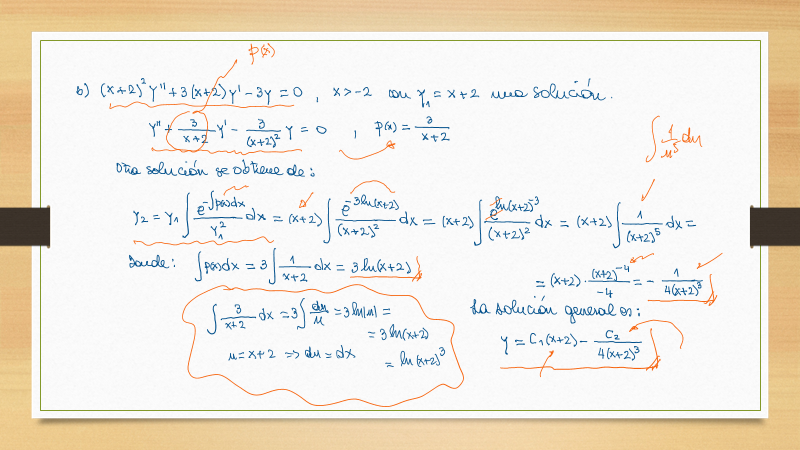 p(x)
b) (x+2)² y'' + 3(x+2) y' - 3y = 0 , x > -2 con y₁ = x+2 una solución.
y'' + 3/(x+2) y' - 3/(x+2)² y = 0 , p(x) = 3/(x+2)
∫ 1/u⁵ du
Otra solución se obtiene de:
y₂ = y₁ ∫ e^(-∫p(x)dx)/y₁² dx = (x+2) ∫ e^(-3ln(x+2))/(x+2)² dx = (x+2) ∫ e^(ln(x+2)^-3)/(x+2)² dx = (x+2) ∫ 1/(x+2)⁵ dx =
donde: ∫p(x)dx = 3 ∫ 1/(x+2) dx = 3 ln(x+2)
= (x+2) · (x+2)⁻⁴/-4 = - 1/4(x+2)³
∫ 3/(x+2) dx = 3 ∫ du/u = 3 ln|u| =
= 3 ln(x+2)
u = x+2 => du = dx
= ln(x+2)³
La solución general es:
y = C₁(x+2) - C₂/4(x+2)³